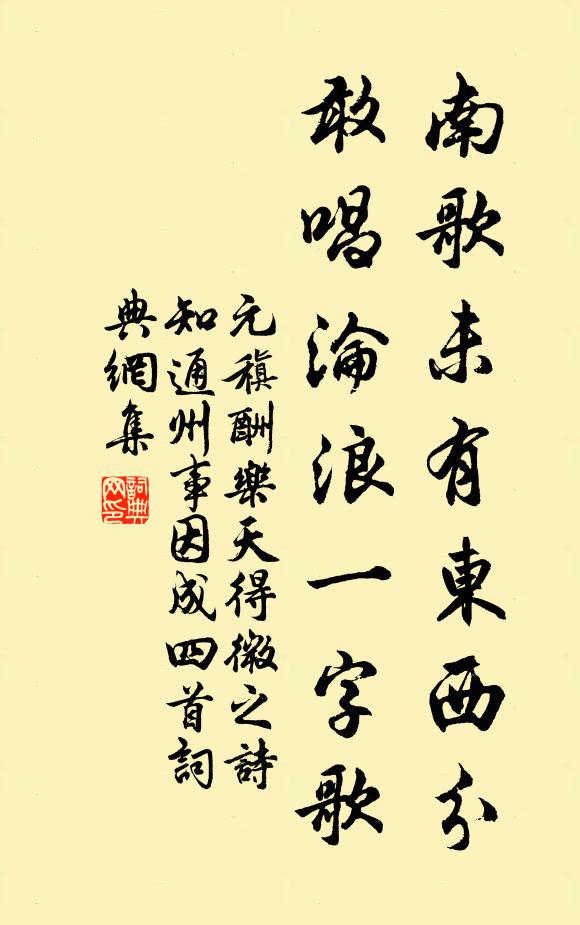 南歌未有東西分
敢唱淪浪一字歌
元稹酬樂天得微之詩
知通州事因成四首詞
典網集
詞典網印